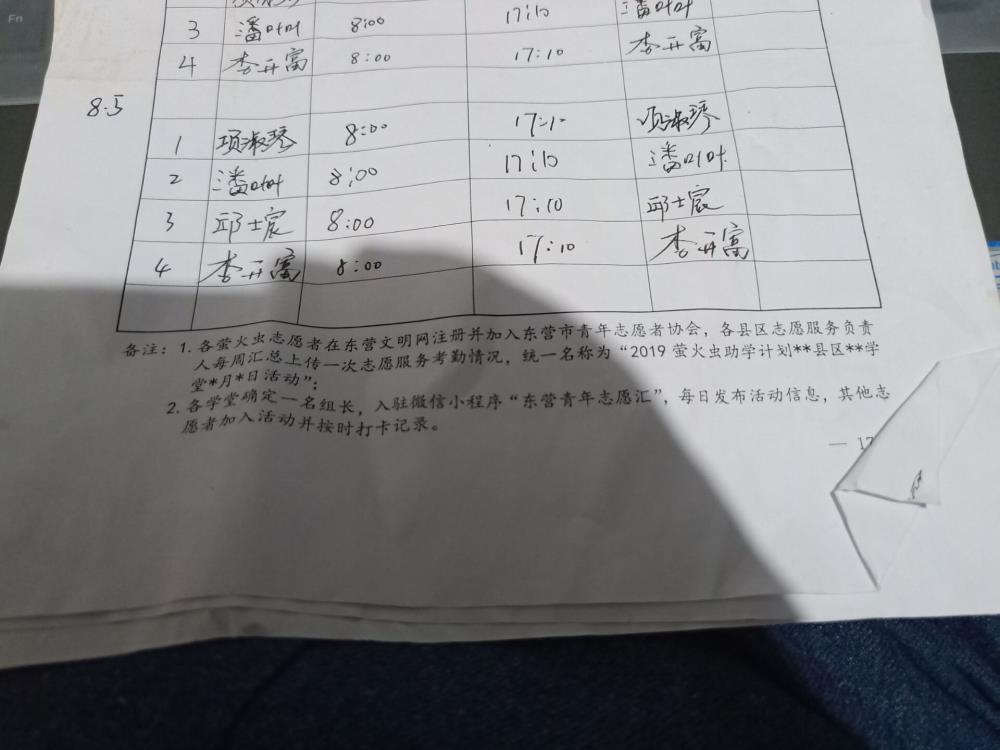 Fn
3 潘叶叶 8:00 17:10 潘叶叶
4 李开富 8:00 17:10 李开富
8.5
1 项淑琴 8:00 17:10 项淑琴
2 潘叶叶 8:00 17:10 潘叶叶
3 邱士宸 8:00 17:10 邱士宸
4 李开富 8:00 17:10 李开富
备注：1. 各萤火虫志愿者在东营文明网注册并加入东营市青年志愿者协会，各县区志愿服务负责
人每周汇总上传一次志愿服务考勤情况，统一名称为“2019 萤火虫助学计划**县区**学
堂*月*日活动”；
2. 各学堂确定一名组长，入驻微信小程序“东营青年志愿汇”，每日发布活动信息，其他志
愿者加入活动并按时打卡记录。
— 17